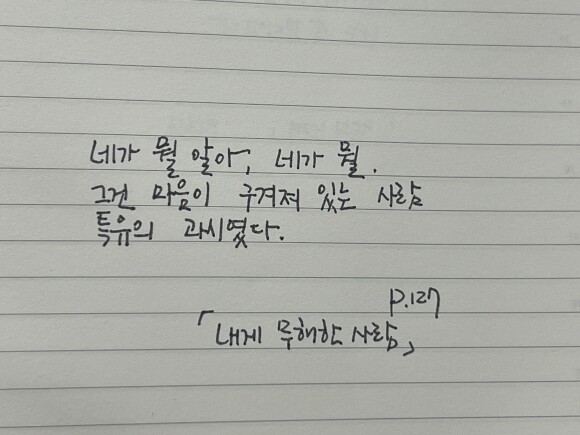 네가 뭘 알아, 네가 뭘.
그건 마음이 구겨져 있는 사람
특유의 과시였다.
p.127
「내게 무해한 사람」